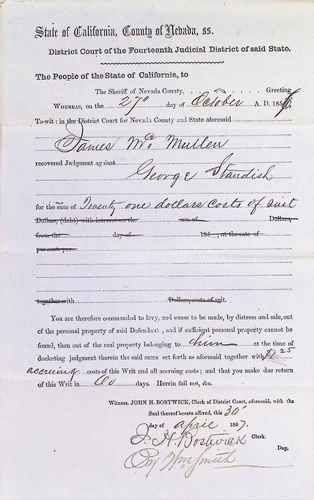 State of California, County of Nevada, ss.
District Court of the Fourteenth Judicial District of said State.
The People of the State of California, to
The Sheriff of Nevada County, Greeting
WHEREAS, on the 27th day of October A. D. 185
To wit: in the District Court for Nevada County and State aforesaid
James McMullen
recovered Judgment against
George Standish
for the sum of Twenty one dollars costs of suit
Dollars, (debt) with interest on the sum of Dollars,
from the day of 185 , at the rate of
per cent per
together with Dollars, costs of suit.
You are therefore commanded to levy, and cause to be made, by distress and sale, out
of the personal property of said Defendant , and if sufficient personal property cannot be
found, then out of the real property belonging to him at the time of
docketing judgment therein the said sums set forth as aforesaid together with 25
accruing costs of this Writ and all accruing costs; and that you make due return
of this Writ in 60 days. Herein fail not, &c.
Witness, JOHN H. BOSTWICK, Clerk of District Court, aforesaid, with the
Seal thereof hereto affixed, this 30th
day of April 1857.
J. H. Bostwick Clerk.
By Wm Smith Dep.